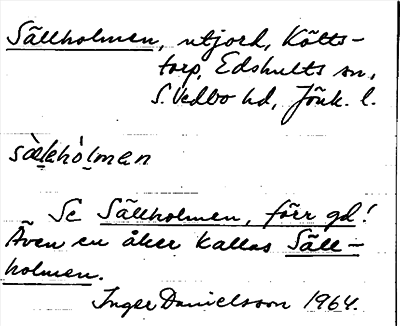 Sällholmen, utjord, Kötts-
torp, Edshults sn,
S. Vedbo hd, Jönk. l.
sàlehólmen
Se Sällholmen, förr gd!
Även en åker kallas Säll-
holmen.
Inger Danielsson 1964.